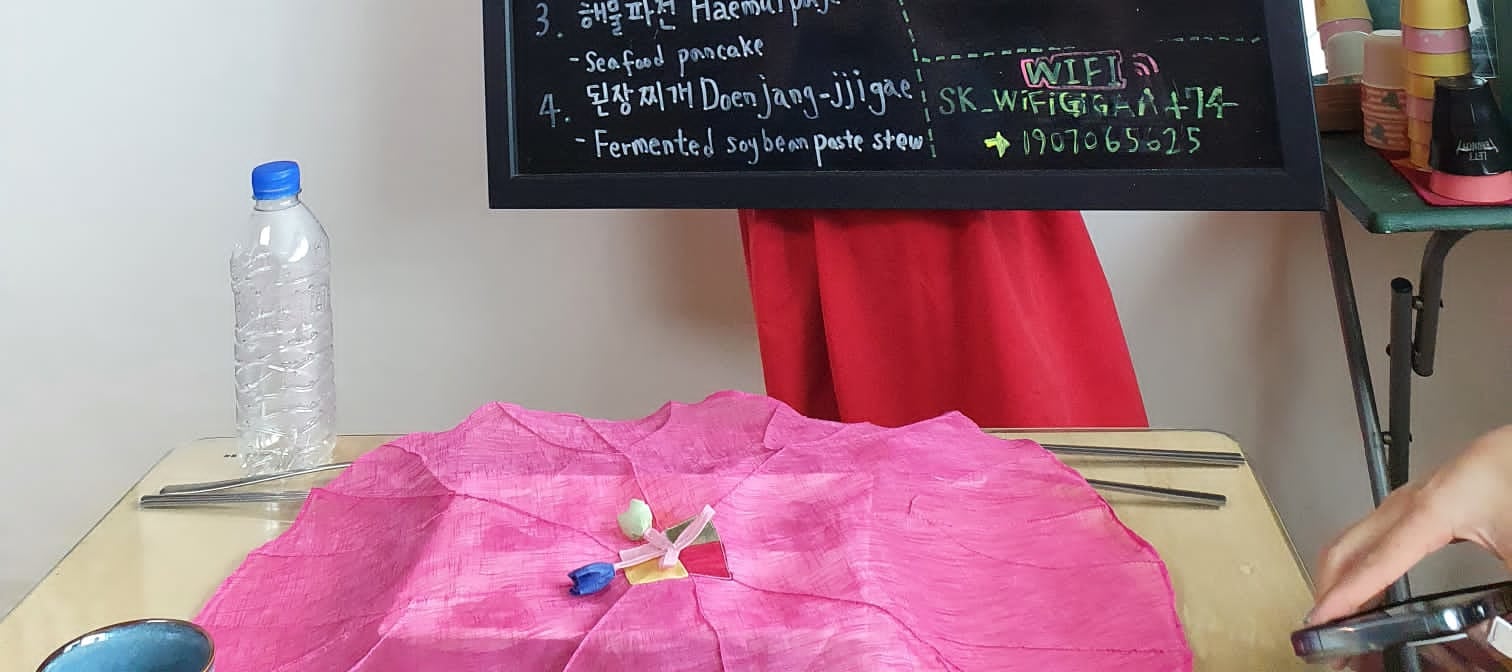 3. 해물파전 Haemul
- Seafood pancake
4. 된장찌개 Doenjang-jjigae
- Fermented soybean paste stew
WIFI
SK_WiFiGiGAA474
→ 1907065625